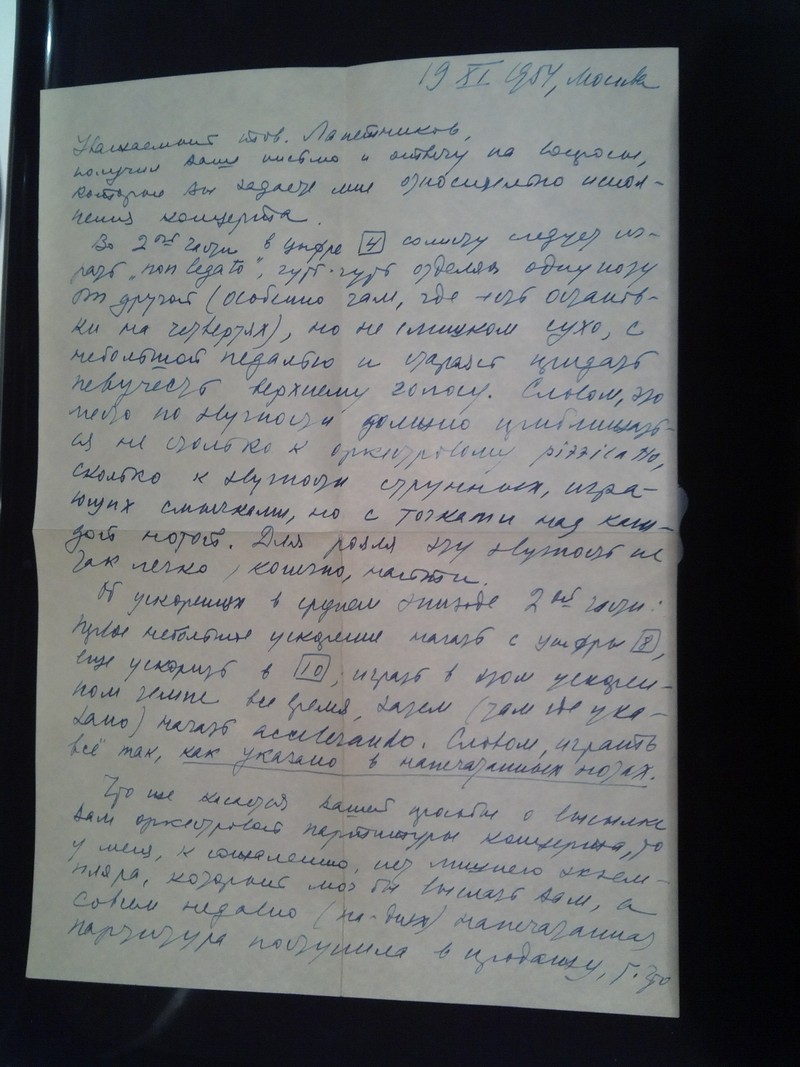 19 XI 1954, Москва
Уважаемый тов. Лапетников,
получил ваше письмо и отвечу на вопросы,
которые вы задаете мне относительно испол-
нения концерта.
Во 2ой части в цифре 4 солисту следует иг-
рать „non legato", чуть-чуть отделяя одну ноту
от другой (особенно там, где есть останов-
ки на четвертях), но не слишком сухо, с
небольшой педалью и стараясь придать
певучесть верхнему голосу. Словом, это
место по звучности должно приближать-
ся не столько к оркестровому pizzicatto,
сколько к звучности струнных, игра-
ющих смычками, но с точками над каж-
дой нотой. Для рояля эту звучность не
так легко, конечно, найти.
Об ускорениях в среднем эпизоде 2ой части:
первое небольшое ускорение начать с цифры 8,
еще ускорить в 10, играть в этом ускорен-
ном темпе все время, затем (там где ука-
зано) начать accelerando. Словом, играить
всё так, как указано в напечатанных нотах.
Что же касается вашей просьбы о высылке
вам оркестровой партитуры концерта, то
у меня, к сожалению, нет лишнего экзем-
пляра, который мог бы выслать вам, а
совсем недавно (на-днях) напечатанная
партитура поступила в продажу, т. что